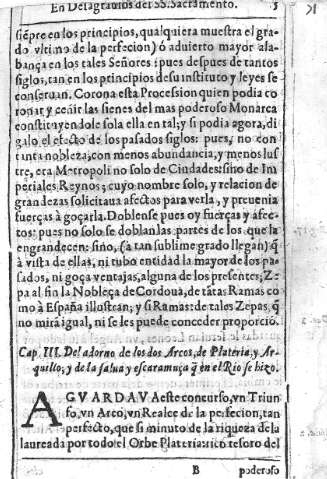 En Desagrauios del SS. Sacramento. 5
siẽpre en los principios, qualquiera muestra el gra-
do vltimo de la perfecion) ò aduierto mayor ala-
bança en los tales Señores: pues despues de tantos
siglos, tan en los principios de su instituto y leyes se
conseruan. Corona esta Procession quien podia co
ronar y ceñir las sienes del mas poderoso Monarca
constituyendole sola ella en tal; y si podia agora, di
galo el efecto de los pasados siglos: pues, no con
tanta nobleza, con menos abundancia, y menos lus
tre, era Metropoli no solo de Ciudades: sino de Im
periales Reynos; cuyo nombre solo, y relacion de
grandezas solicitaua afectos para verla, y preuenia
fuerças à goçarla. Doblense pues oy fuerças y afec-
tos: pues no solo se doblan las partes de los que la
engrandecen: sino, (à tan sublime grado llegan) q̃
à vista de ellas, ni tubo entidad la mayor de los pa-
sados, ni goça ventajas, alguna de los presentes; Ze
pa al fin la Nobleça de Cordoua, de tãtas Ramas co
mo à España illustran; y si Ramas: de tales Zepas, q̃
no mirã igual, ni se les puede conceder proporciõ.
Cap. III. Del adorno de los dos Arcos, de Plateria, y Ar-
quillo; y de la salua y escaramuça q̃ en el Rio se hizo.
AGVARDAVA este concurso, vn Triun
fo, vn Arco, vn Realce de la perfecion, tan
perfecto, que si minuto de la riqueza de la
laureada por todo el Orbe Plateria: rico tesoro del
B poderoso